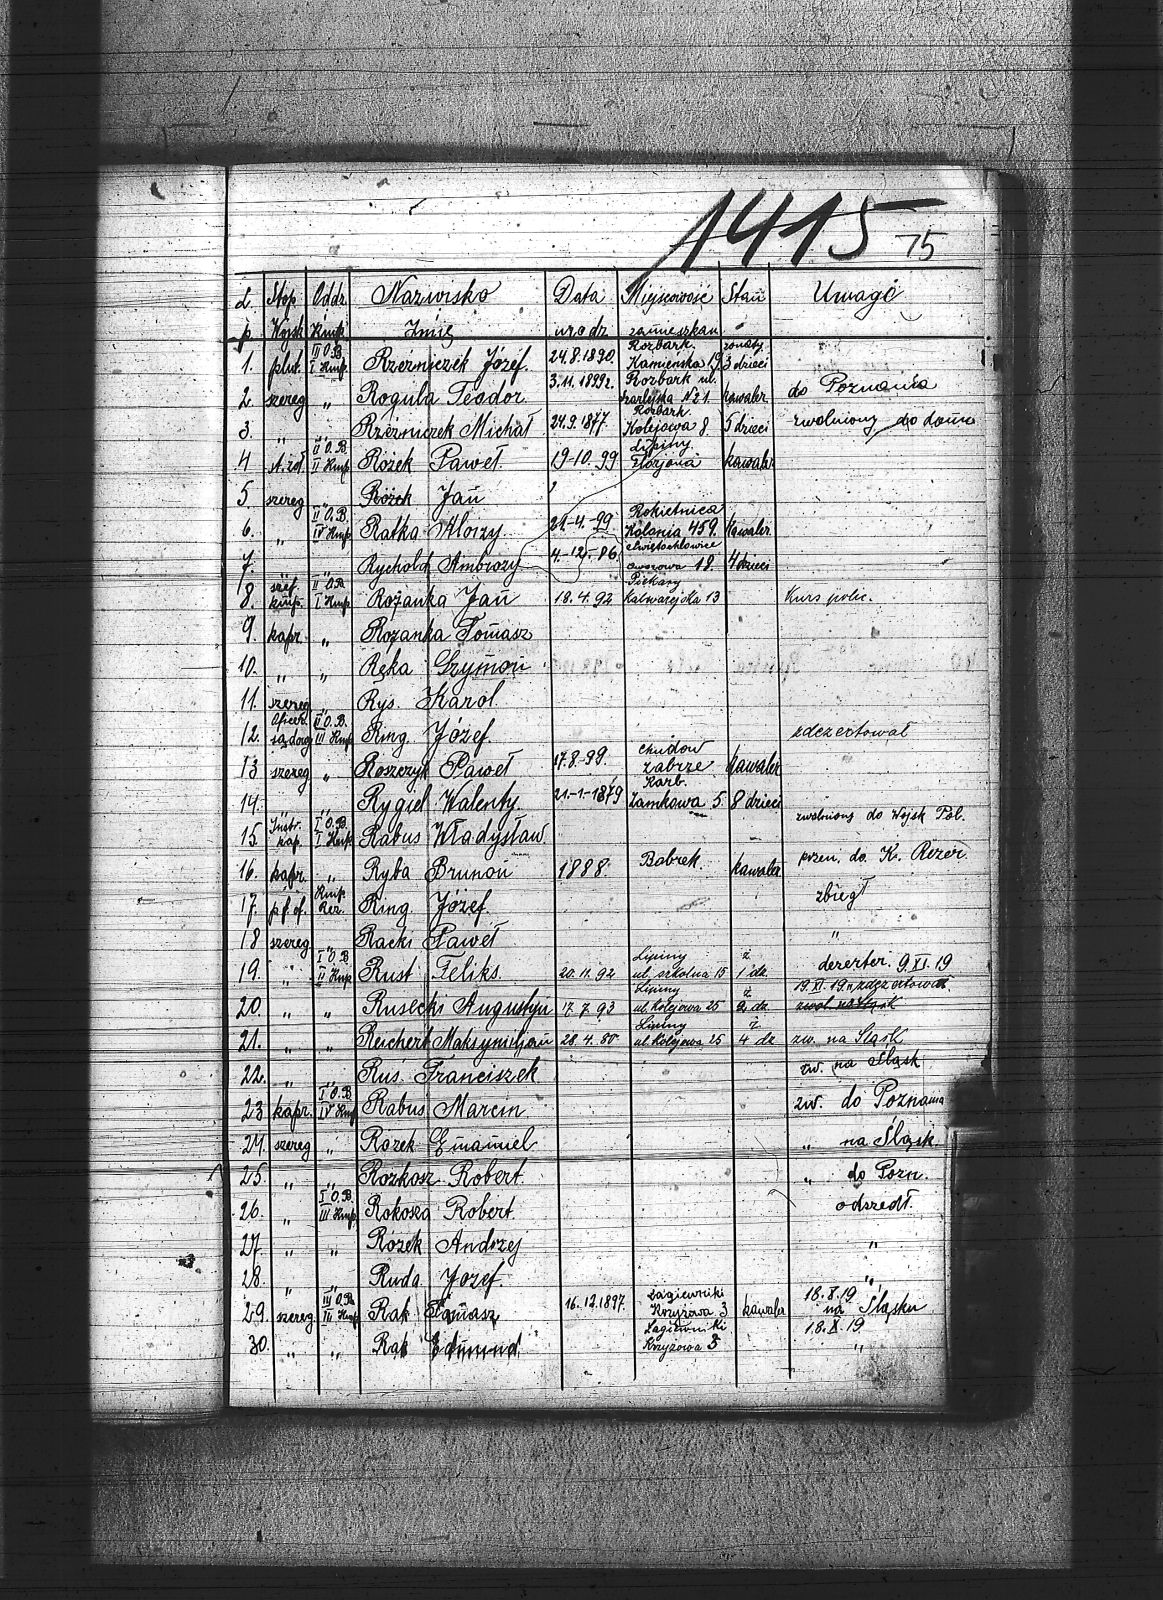 1415 75
L. Stop. Oddz. Nazwisko Data Miejscowość Stan Uwagi
p. Wojsk Kmp. Imię urodz zamieszkan
1. plut. III O.B. I Kmp. Rzeźniczek Józef. 24.8.1890. Rozbark. Kamieńska 19. żonaty 3 dzieci
2. szereg „ Rogula Teodor 3.11.1899r. Rozbark ul. № 1 kawaler do Poznania
3. „ „ Rzeźniczek Michał 24.9.1877. Rozbark. Kolejowa 8 5 dzieci zwolniony do domu
4 st. żoł. II O.B. II Kmp Rożek Paweł 19-10.99 Lipiny Florjana kawaler
5 szereg „ Rożek Jan
6. „ II O.B. IV Kmp Ratka Alojzy 21-4.-99 Rokietnica Kolonia 459. Kawaler
7. Rychold Ambroży 4.-12.-86. Świętochłowice 18. 4 dzieci
8. szef kmp. II O.B. I Kmp Rożanka Jan 18.4.92 Piekary Kalwaryjska 13 Kurs polic.
9. kapr. „ Rożanka Tomasz
10. „ „ Ręka Szymon
11. szereg „ Rys. Karol
12. Oficer żądog II O.B. III Kmp Ring. Józef. zdezertował
13 szereg „ Roszczyk Paweł 17.8-99. Chudow zabrze Kawaler
14. „ Rygiel Walenty. 21.-1.-1879 Karb. Zamkowa 5 8 dzieci
15. kap. I O.B. I Kmp Rabus Władysław zwolniony do Wojsk Pol.
16. kapr „ Ryba Brunon 1888. Bobrek. kawaler przen. do K. Rezer.
17. Kmp. Rez. Ring Józef. zbiegł
18 szereg „ Racki Paweł „
19. „ I O.B. II Kmp Rust Feliks. 20.11.92 Lipiny ul. szkolna 15 ż. 1 dz dezerter. 9.XI.19
20. „ „ Rusecki Augustyn 17.7.93 Lipiny ul. Kolejowa 25 ż. 2 dz. 19.XI.19r. zdezertował zwol. na Śląsk
21. „ „ Reichert Maksymiljan 28.4.80 Lipiny ul. Kolejowa 25 ż. 4 dz zw. na Śląsk
22. „ „ Rus. Franciszek zw. na Śląsk
23 kapr. I O.B. IV Kmp Rabus Marcin zw. do Poznania
24. szereg „ Rożek Emanuel „ na Śląsk.
25. „ „ Rozkosz Robert. „ do Pozn.
26. „ I O.B. III Kmp. Rokosza Robert. odszedł.
27. „ „ Rożek Andrzej „
28. „ „ Ruda Józef „
29. szereg. III O.B. III Kmp. Rak Tomasz 16.12.1897. Łagiewniki Krzyżowa 3 kawaler 18.8.19 na Śląsku
30. „ „ Rak Edmund Łagiewniki Krzyżowa 3 18.X.19. „